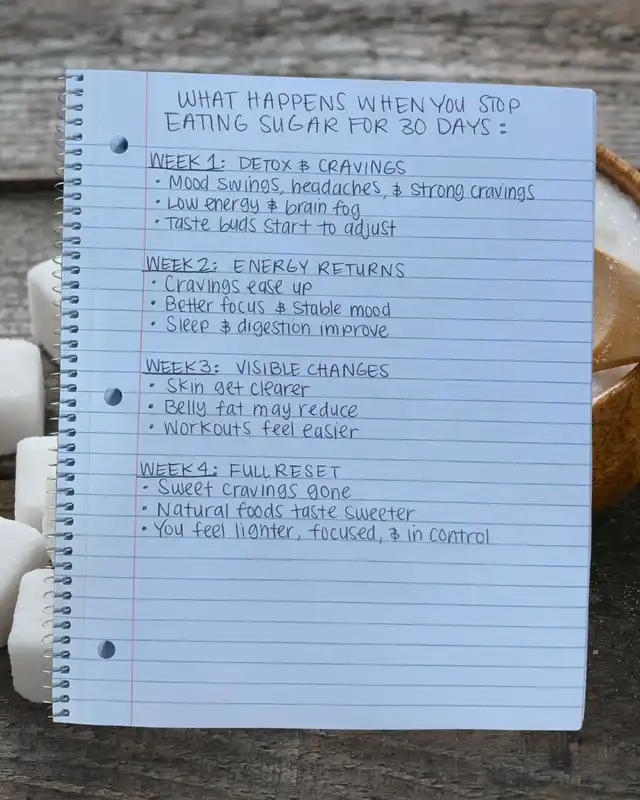 WHAT HAPPENS WHEN YOU STOP
EATING SUGAR FOR 30 DAYS:
WEEK 1: DETOX & CRAVINGS
• Mood swings, headaches, & strong cravings
• Low energy & brain fog
• Taste buds start to adjust
WEEK 2: ENERGY RETURNS
• Cravings ease up
• Better focus & stable mood
• Sleep & digestion improve
WEEK 3: VISIBLE CHANGES
• Skin get clearer
• Belly fat may reduce
• Workouts feel easier
WEEK 4: FULL RESET
• Sweet cravings gone
• Natural foods taste sweeter
• You feel lighter, focused, & in control